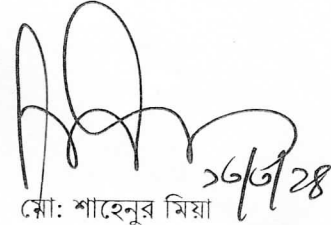 ১৩/৩/২৪
মো: শাহেনুর মিয়া